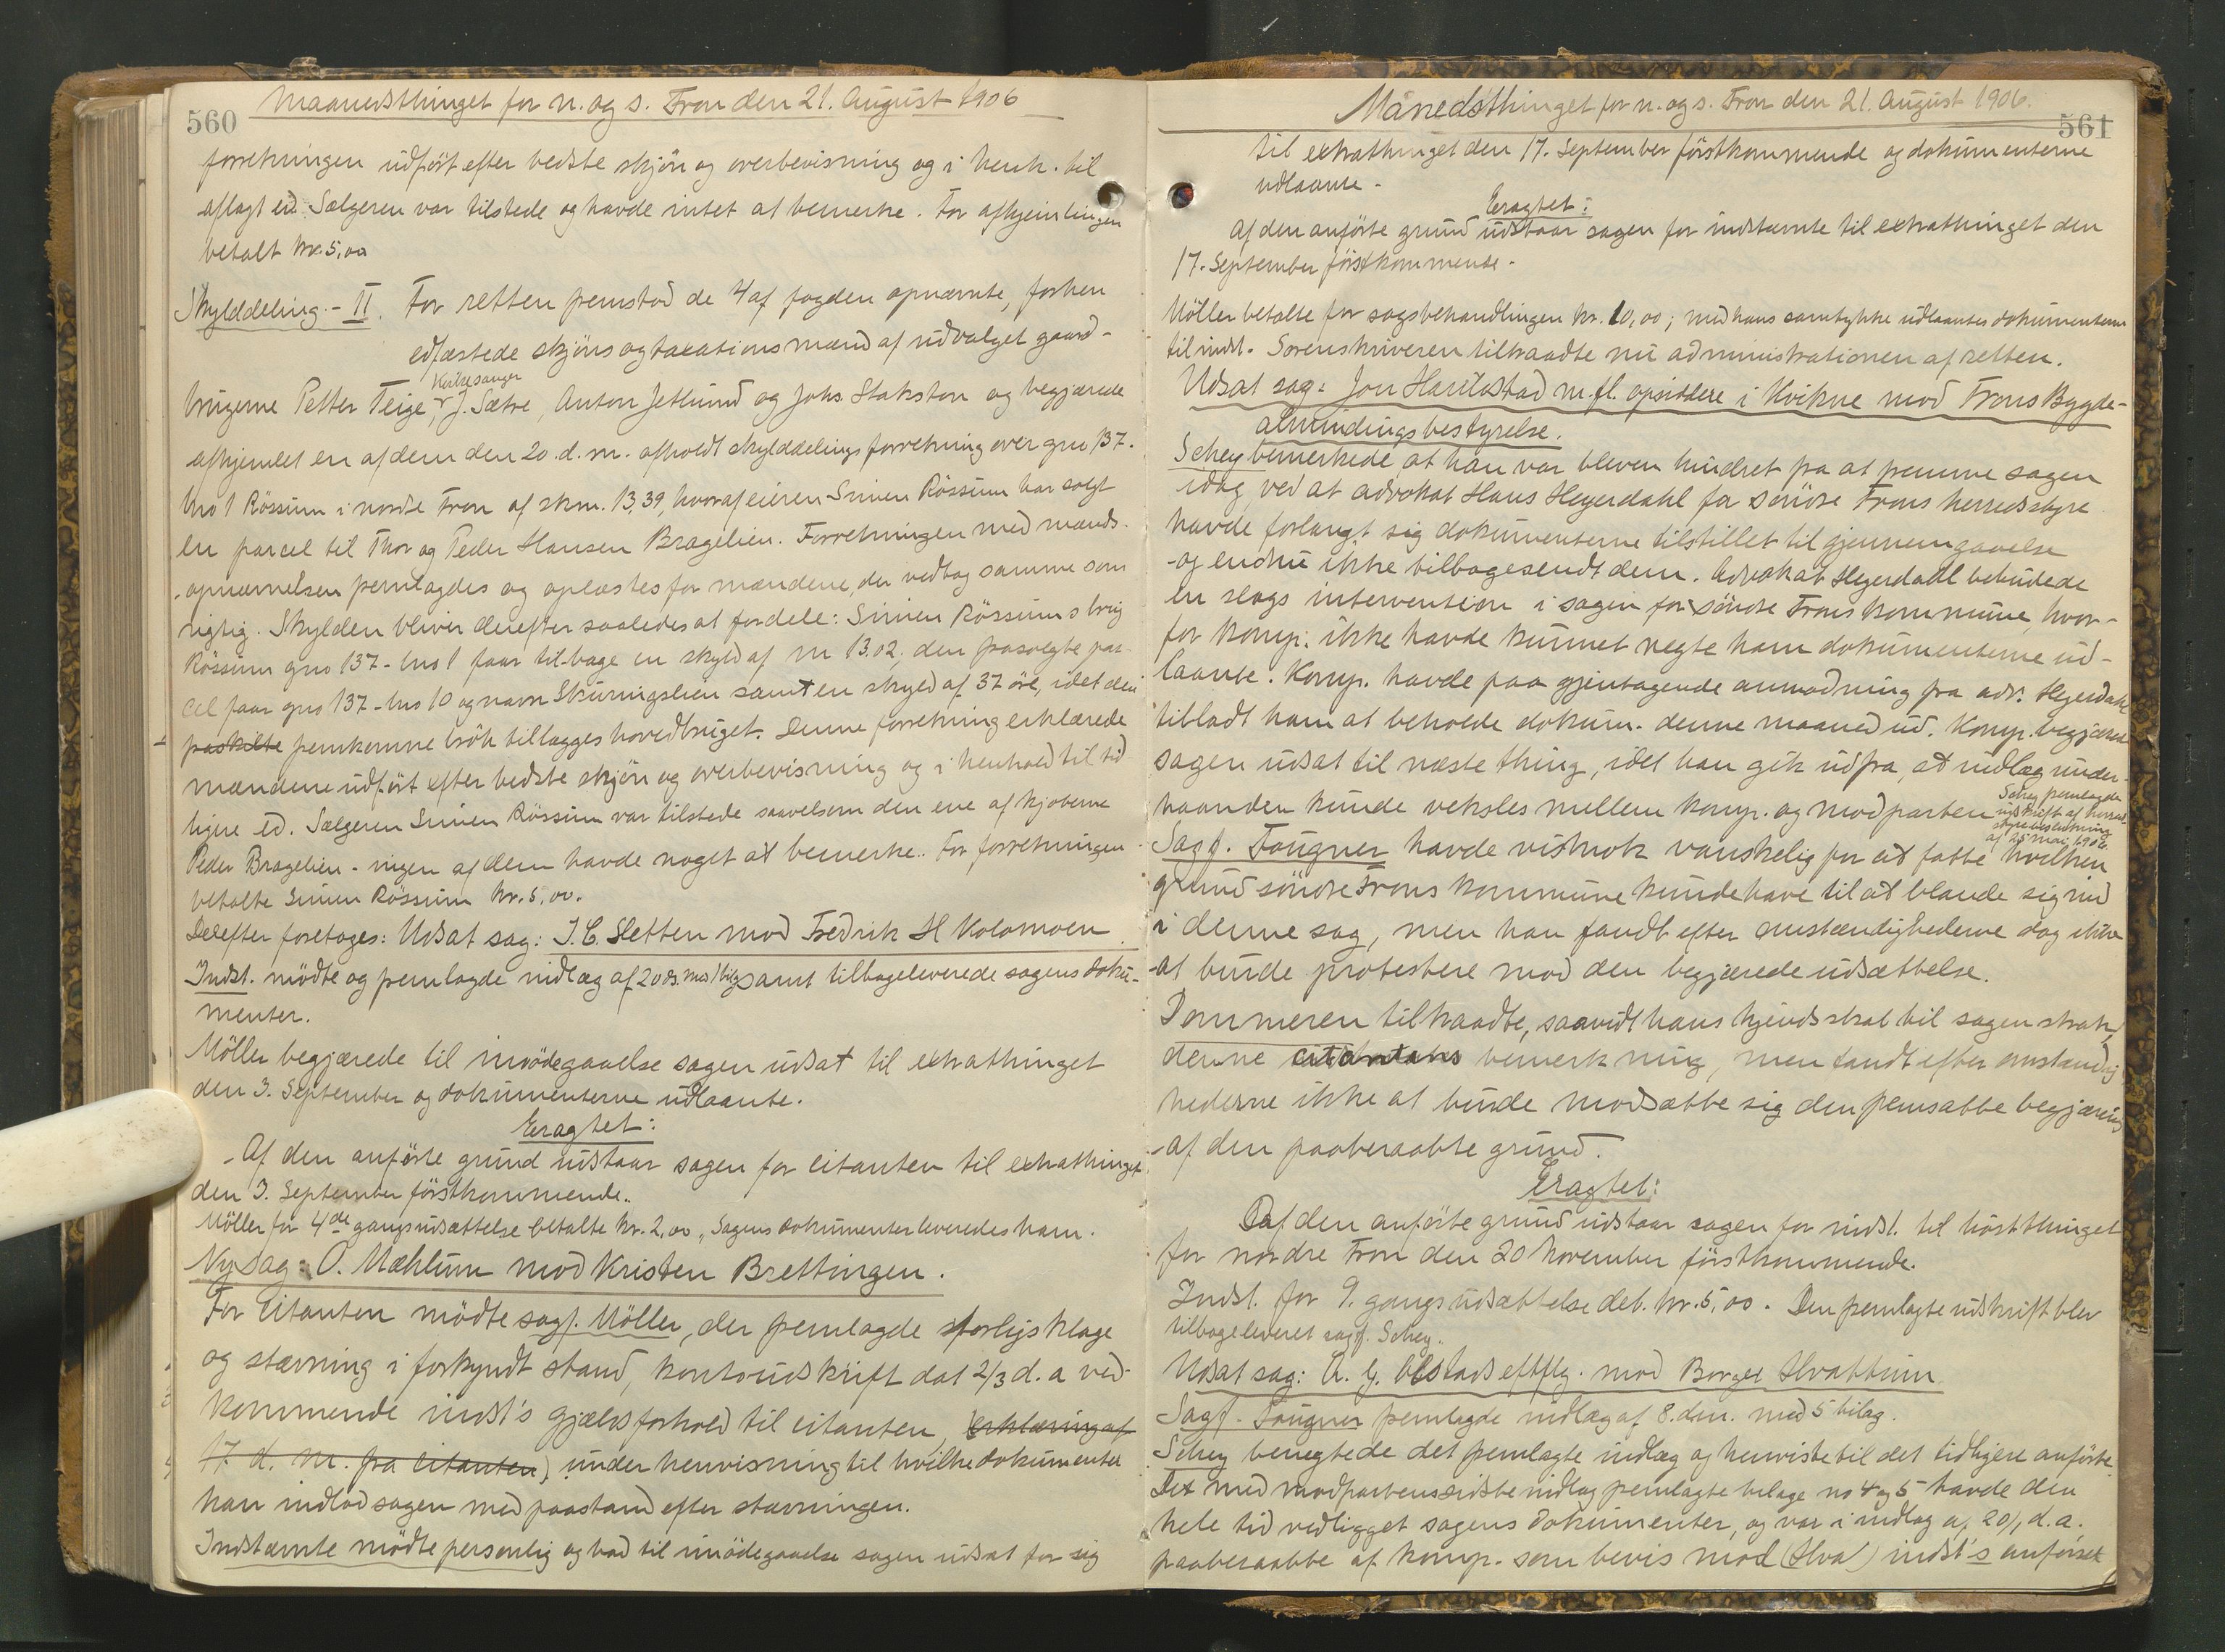 560
Maanedsthinget for n. og s. Fron den 21. August 1906
forretningen udført efter bedste skjön og overbevisning og i henh. til
aflagt ed. Sælgeren var tilstede og havde intet at bemerke. For afhjemlingen
betalt kr. 5,00
Skylddeling - II. For retten fremstod de 4 af fogden opnævnte, forhen
edfæstede skjöns og taxationsmænd af udvalget gaard-
brugerne Petter Teige, Kirkesanger J. Sætre, Anton Jetlund og Johs. Stakston og begjærede
afhjemlet en af dem den 20. d. m. afholdt skylddelingsforretning over gno 137.
bno 1 Rössum i nordre Fron af skm. 13,39, hvoraf eieren Simen Rössum har solgt
en parcel til Thor og Peder Hansen Bragelien. Forretningen med mands-
opnævnelsen fremlagdes og oplæstes for mændene, der vedtog samme som
rigtig. Skylden bliver derefter saaledes at fordele: Simen Rössums brug
Rössum gno 137 - bno 1 faar tilbage en skyld af m 13.02, den frasolgte par-
cel faar gno 137 - bno 10 og navn Skurungslien samt en skyld af 37 öre, idet den
paskilte fremkomne brök tillægges hovedbruget. Denne forretning erklærede
mændene udfört efter bedste skjön og overbevisning og i henhold til tid
ligere ed. Sælgeren Simen Rössum var tilstede saavelsom den ene af kjöberne
Peder Bragelien - ingen af dem havde noget at bemerke. For forretningen
betalte Simen Rössum kr. 5,00.
Derefter foretoges: Udsat sag: J. C. Sletten mod Fredrik H Kolomoen.
Indst. mödte og fremlagde indlæg af 20 ds. med 1 bilag samt tilbageleverede sagens doku-
menter.
Möller begjærede til imödegaaelse sagen udsat til extrathinget
den 3. September og dokumenterne udlaante.
Eragtet:
Af den anförte grund udstaar sagen for citanten til extrathinget
den 3. September förstkommende.
Möller for 4de gangs udsættelse betalte kr. 2,00, Sagens dokumenter leveredes ham.
Ny sag: O. Mæhlum mod Kristen Brettingen.
For citanten mödte sagf. Möller, der fremlagde forligsklage
og stævning i forkyndt stand, kontoudskrift dat 2/3 d. a ved-
kommende indst's gjældsforhold til citanten, (erklæring af
17 d. m. fra citanten) under henvisning til hvilke dokumenter
han indlod sagen med paastand efter stævningen.
Indstævnte mödte personlig og bad til imödegaaelse sagen udsat for sig
Månedsthinget for n. og s. Fron den 21. August 1906.
561
til extrathinget den 17. September förstkommende og dokumenterne
udlaante.
Eragtet:
Af den anförte grund udstaar sagen for indstævnte til extrathinget den
17. September förstkommende.
Möller betalte for sagsbehandlingen kr. 10,00; med hans samtykke udlaantes dokumenterne
til indst. Sorenskriveren tiltraadte nu administrationen af retten.
Udsat sag: Jon Harildstad m. fl. opsiddere i Kvikne mod Frons Bygde-
almindingsbestyrelse.
Schey bemerkede at han var bleven hindret fra at fremme sagen
idag, ved at advokat Hans Heyerdahl for söndre Frons herredsstyre
havde forlangt sig dokumenterne tilstillet til gjennemgaaelse
og endnu ikke tilbagesendt dem. Advokat Heyerdahl bebudede
en slags intervention i sagen for söndre Frons kommune, hvor-
for komp. ikke havde kunnet negte ham dokumenterne ud-
laante. Komp. havde paa gjentagende anmodning fra adv. Heyerdahl
tilladt ham at beholde dokum. denne maaned ud. Komp. begjærede
sagen udsat til næste thing, idet han gik ud fra, at indlæg under-
haanden kunde veksles mellem komp. og modparten Schey fremlagde
udskrift af herred-
styrebeslutning
af 25 Mai 1906.
Sagf. Fougner havde vistnok vanskelig for at fatte hvilken
grund söndre Frons kommune kunde have til at blande sig ind
i denne sag, men han fandt efter omstændighederne dog ikke
at burde protestere mod den begjærede udsættelse.
Dommeren tiltraadte, saavidt hans kjendskab til sagen strak,
denne citantens bemerkning, men fandt efter omstændig
hederne ikke at burde modsætte sig den fremsatte begjæring
af den paaberaabte grund.
Eragtet:
Af den anförte grund udstaar sagen for indst. til höstthinget
for nordre Fron den 20 November förstkommende.
Indst. for 9. gangs udsættelse deb. kr. 5,00. Den fremlagte udskrift blev
tilbageleveret sagf. Schey.
Udsat sag: A. G. Ulstads eftflg. mod Borger Hvattum
Sagf. Fougner fremlagde indlæg af 8. dm. med 5 bilag.
Schey benegtede det fremlagte indlæg og henviste til det tidligere anförte.
Det med modpartens sidste indlæg fremlagte bilage no 4 og 5 havde den
hele tid vedligget sagens dokumenter, og var i indlæg af d. a.
paaberaabte af komp. som bevis mod (Hva) indst's anförsel